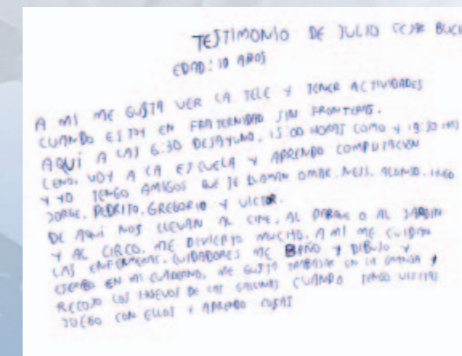 TESTIMONIO DE JULIO CESAR
EDAD: 10 AÑOS
A MI ME GUSTA VER LA TELE Y TENER ACTIVIDADES
CUANDO ESTOY EN FRATERNIDAD SIN FRONTERAS.
AQUÍ A LAS 6:30 DESAYUNO, 15:00 HORAS COMO Y 19:30 HRS
CENO. VOY A LA ESCUELA Y APRENDO COMPUTACION
Y YO TENGO AMIGOS QUE SE LLAMAN OMAR, ALONSO,
JORGE, PEDRITO, GREGORIO Y VICTOR.
DE AQUÍ NOS LLEVAN AL CINE, AL PARQUE O AL JARDIN
Y AL CIRCO. ME DIVIERTO MUCHO. A MI ME CUIDAN
LAS ENFERMERAS, CUIDADORES ME BAÑO Y DIBUJO Y
ESCRIBO EN MI CUADERNO, ME GUSTA TRABAJAR EN LA GRANJA Y
RECOJO LOS HUEVOS DE LAS GALLINAS CUANDO TENGO VISITAS
JUEGO CON ELLOS Y APRENDO COSAS